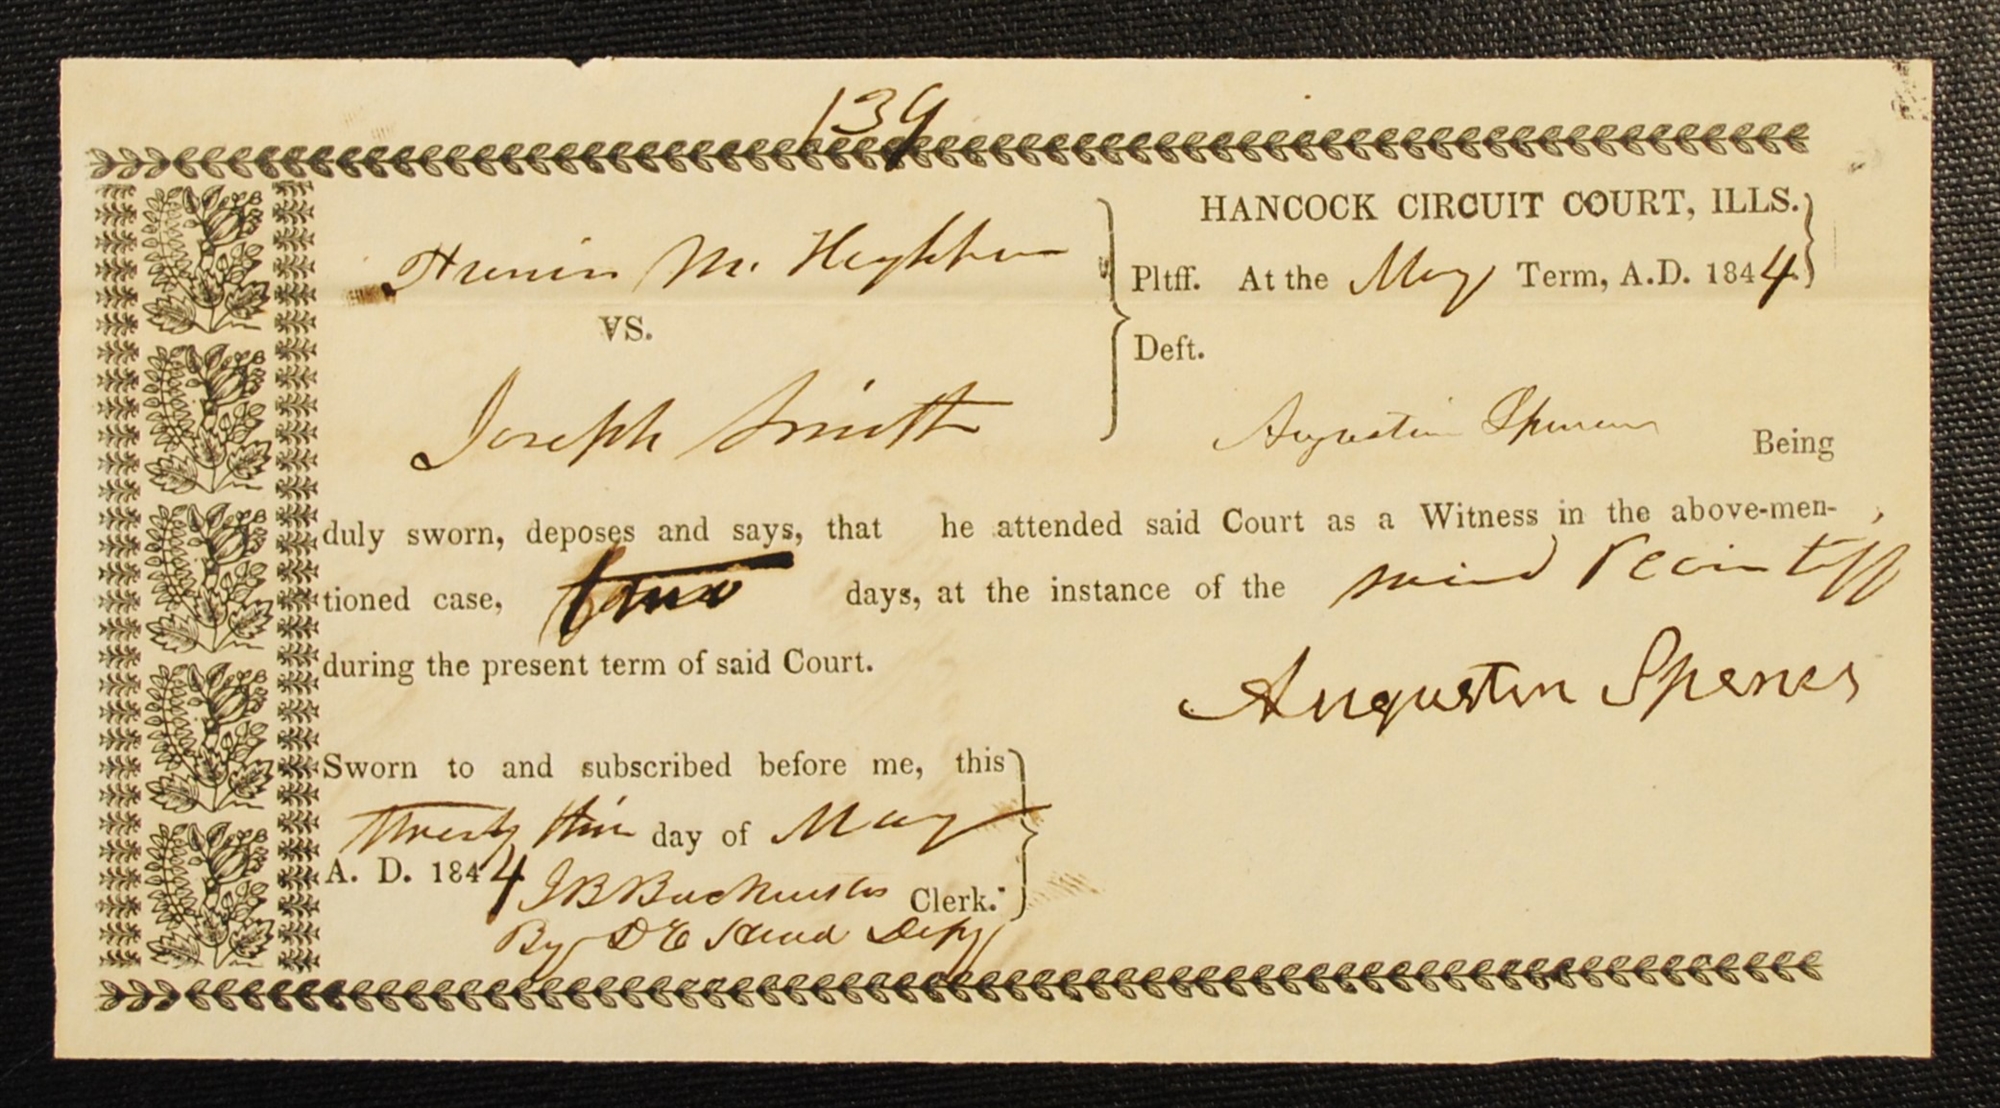 139
HANCOCK CIRCUIT COURT, ILLS.
M. Heighten
Pltff. At the May Term, A.D. 1844.
VS.
Deft.
Joseph Smith
Augustin Spencer Being
duly sworn, deposes and says, that he attended said Court as a Witness in the above-men-
tioned case, two days, at the instance of the said Plaintiff
during the present term of said Court.
Augustin Spencer
Sworn to and subscribed before me, this
Twenty third day of May
A. D. 1844 J B Backenstos Clerk.
By D E Head Depy